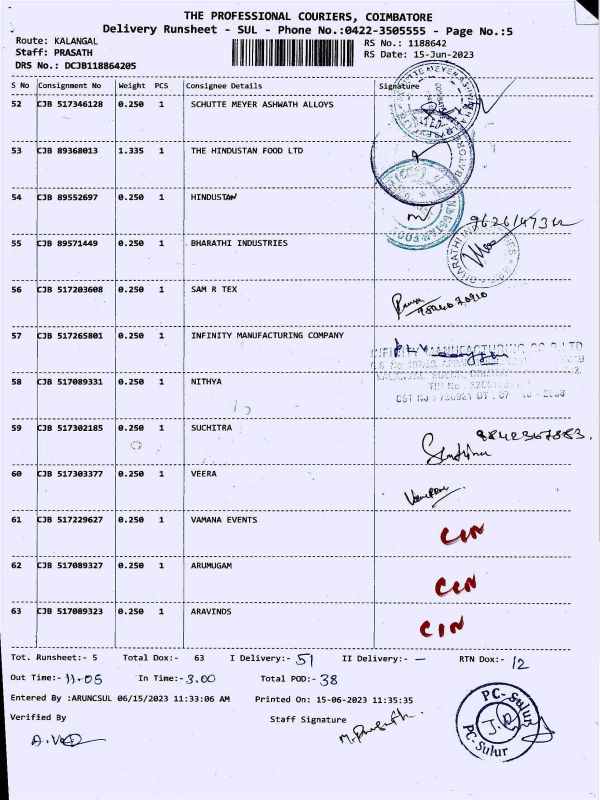 THE PROFESSIONAL COURIERS, COIMBATORE
Delivery Runsheet - SUL - Phone No.:0422-3505555 - Page No.:5
Route: KALANGAL
RS No.: 1188642
Staff: PRASATH
RS Date: 15-Jun-2023
DRS No.: DCJB118864205
S No Consignment No Weight PCS Consignee Details Signature
52 CJB 517346128 0.250 1 SCHUTTE MEYER ASHWATH ALLOYS
53 CJB 89368013 1.335 1 THE HINDUSTAN FOOD LTD
54 CJB 89552697 0.250 1 HINDUSTAN
55 CJB 89571449 0.250 1 BHARATHI INDUSTRIES
56 CJB 517203608 0.250 1 SAM R TEX
57 CJB 517265801 0.250 1 INFINITY MANUFACTURING COMPANY
58 CJB 517089331 0.250 1 NITHYA
59 CJB 517302185 0.250 1 SUCHITRA 9842367883.
60 CJB 517303377 0.250 1 VEERA
61 CJB 517229627 0.250 1 VAMANA EVENTS CIN
62 CJB 517089327 0.250 1 ARUMUGAM CIN
63 CJB 517089323 0.250 1 ARAVINDS CIN
Tot. Runsheet:- 5 Total Dox:- 63 I Delivery:- 51 II Delivery:- — RTN Dox:- 12
Out Time:- 11.05 In Time:- 3.00 Total POD:- 38
Entered By :ARUNCSUL 06/15/2023 11:33:06 AM Printed On: 15-06-2023 11:35:35
Verified By Staff Signature
M. Prasath.
PC-Sulur
PC-Sulur